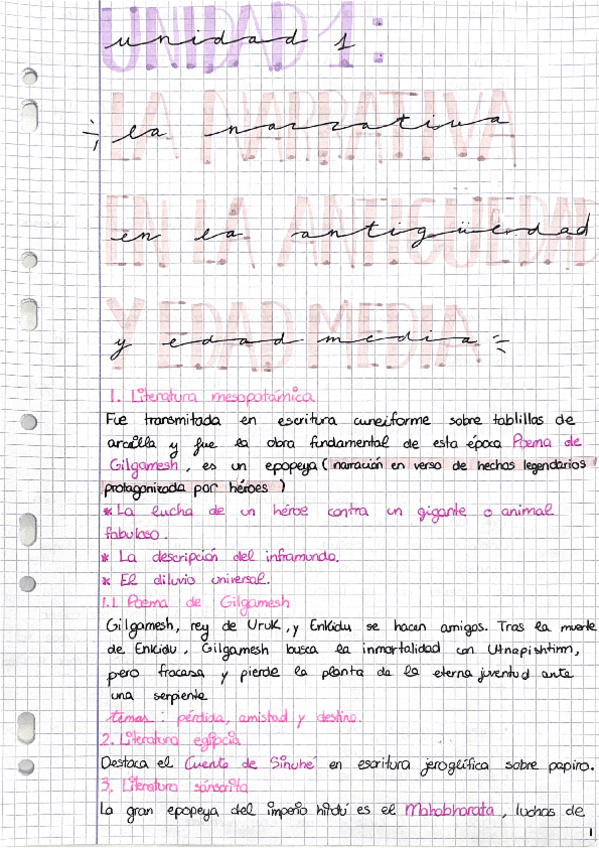 UNIDAD 1:
unidad 1
LA NARRATIVA
la narrativa
EN LA ANTIGÜEDAD
en la antigüedad
Y EDAD MEDIA
y edad media
1. Literatura mesopotámica
Fue transmitada en escritura cuneiforme sobre tablillas de
arcilla y fue la obra fundamental de esta época Poema de
Gilgamesh, es un epopeya (narración en verso de hechos legendarios
protagonizada por héroes)
* La lucha de un héroe contra un gigante o animal
fabuloso.
* La descripción del inframundo.
* El diluvio universal.
1.1. Poema de Gilgamesh
Gilgamesh, rey de Uruk, y Enkidu se hacen amigos. Tras la muerte
de Enkidu, Gilgamesh busca la inmortalidad con Utnapishtim,
pero fracasa y pierde la planta de la eterna juventud ante
una serpiente
temas: pérdida, amistad y destino.
2. Literatura egipcia
Destaca el Cuento de Sinuhé en escritura jeroglífica sobre papiro.
3. Literatura sánscrita
La gran epopeya del imperio hindú es el Mahabharata, luchas de
1